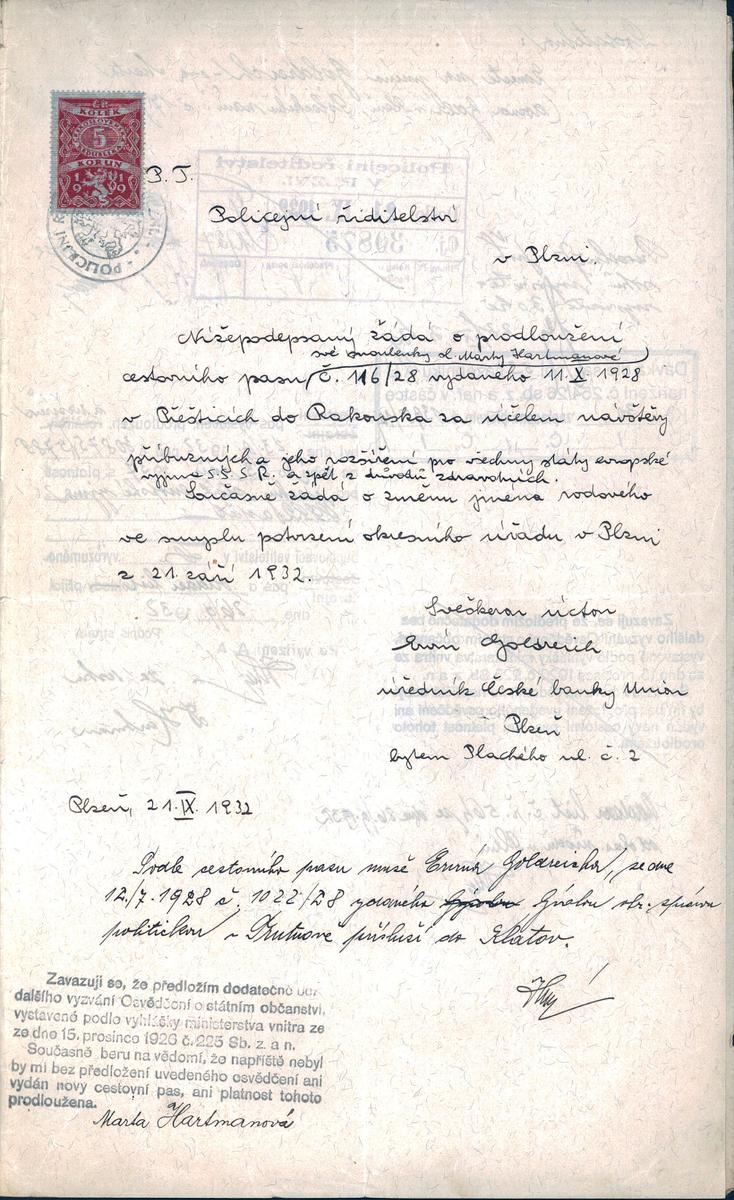 KOLEK
5
KORUN
1919
POLICEJNÍ
P. T.
Policejní řiditelství
v Plzni.
Nížepodepsaný žádá o prodloužení
své snoubenky sl. Marty Hartmanové
cestovního pasu č. 116/28 vydaného 11.X 1928
v Přešticích do Rakouska za účelem navštěvy
příbuzných a jeho rozšíření pro všechny státy evropské
vyjma S.S.S.R. a zpět z důvodů zdravotních.
Současně žádá o změnu jména rodového
ve smyslu potvrzení okresního úřadu v Plzni
z 21. září 1932.
Svěčkerou úctou
Ervín Goldreich
úředník České banky Union
Plzeň
bytem Plachého ul. č. 2
Plzeň, 21.IX. 1932
Podle cestovního pasu muže Ervína Goldreicha, ze dne
12./7. 1928 č. 1022/28 vydaného Gýslou okr. správou
politickou v Trutnově přísluší do Klatov.
Zavazuji se, že předložím dodatečně bez
dalšího vyzvání Osvědčení o státním občanství,
vystavené podle vyhlášky ministerstva vnitra ze
ze dne 15. prosince 1926 č. 225 Sb. z. a n.
Současně beru na vědomí, že napříště nebyl
by mi bez předložení uvedeného osvědčení ani
vydán nový cestovní pas, ani platnost tohoto
prodloužena.
Marta Hartmanová